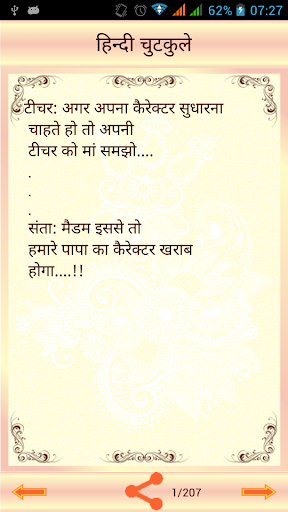 62% 07:27
हिन्दी चुटकुले
टीचर: अगर अपना कैरेक्टर सुधारना
चाहते हो तो अपनी
टीचर को मां समझो....
.
.
.
संता: मैडम इससे तो
हमारे पापा का कैरेक्टर खराब
होगा....!!
1/207